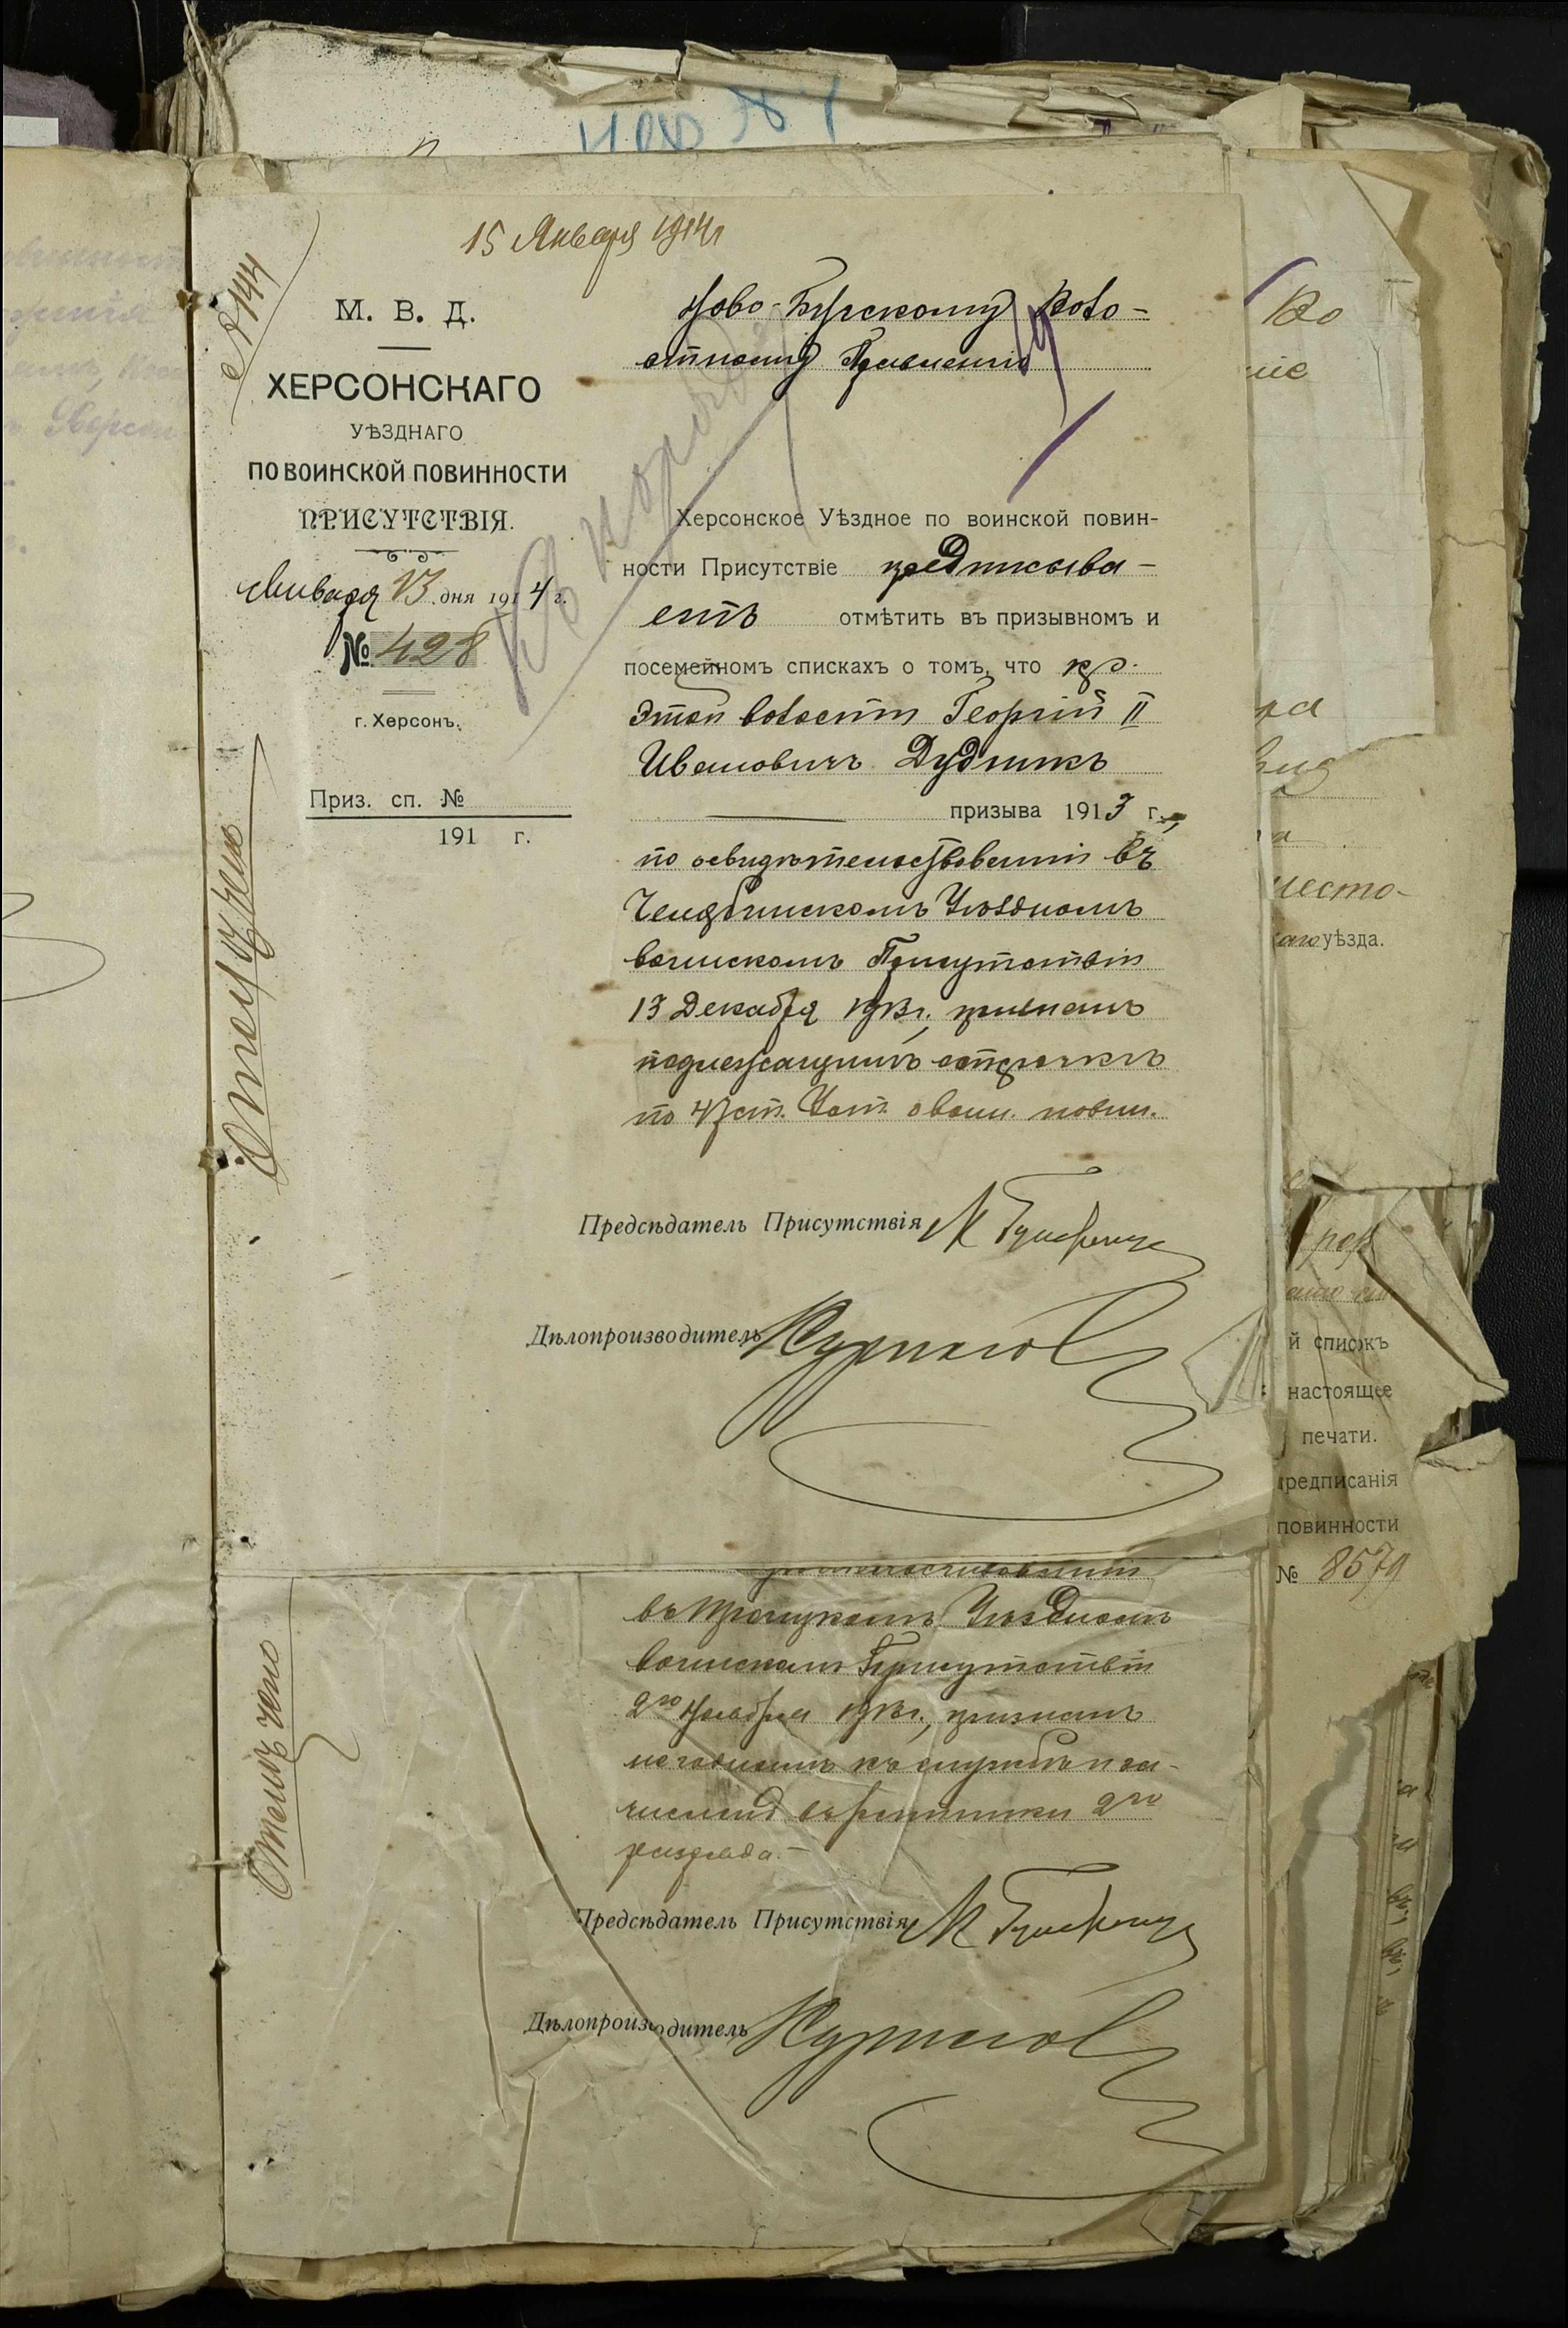 15 Января 1914 г
№ 144
М. В. Д.
ХЕРСОНСКАГО
УѢЗДНАГО
ПО ВОИНСКОЙ ПОВИННОСТИ
ПРИСУТСТВІЯ.
Января 13 дня 1914 г.
№ 428
г. Херсонъ.
Приз. сп. №
191 г.
Отмѣчено
Ново-Бугскому Воло-
стному Правленію
Херсонское Уѣздное по воинской повин-
ности Присутствіе предписыва-
етъ отмѣтить въ призывномъ и
посемейномъ спискахъ о томъ, что кр.
этой волости Георгій II
Ивановичъ Дудникъ
призыва 1913 г.,
по освидѣтельствованіи въ
Челябинскомъ Уѣздномъ
воинскомъ Присутствіи
13 Декабря 1913 г., признанъ
подлежащимъ отсрочкѣ
по 47 ст. Уст. о воин. повин.
Предсѣдатель Присутствія
Дѣлопроизводитель
въ Троицкомъ Уѣздномъ
воинскомъ Присутствіи
2го Ноября 1913 г., признанъ
негоднымъ къ службѣ и за-
численъ въ ратники 2го
разряда.-
Отмѣчено
Предсѣдатель Присутствія
Дѣлопроизводитель
Во
место-
уѣзда.
й списокъ
настоящее
печати.
редписанія
повинности
№ 8579